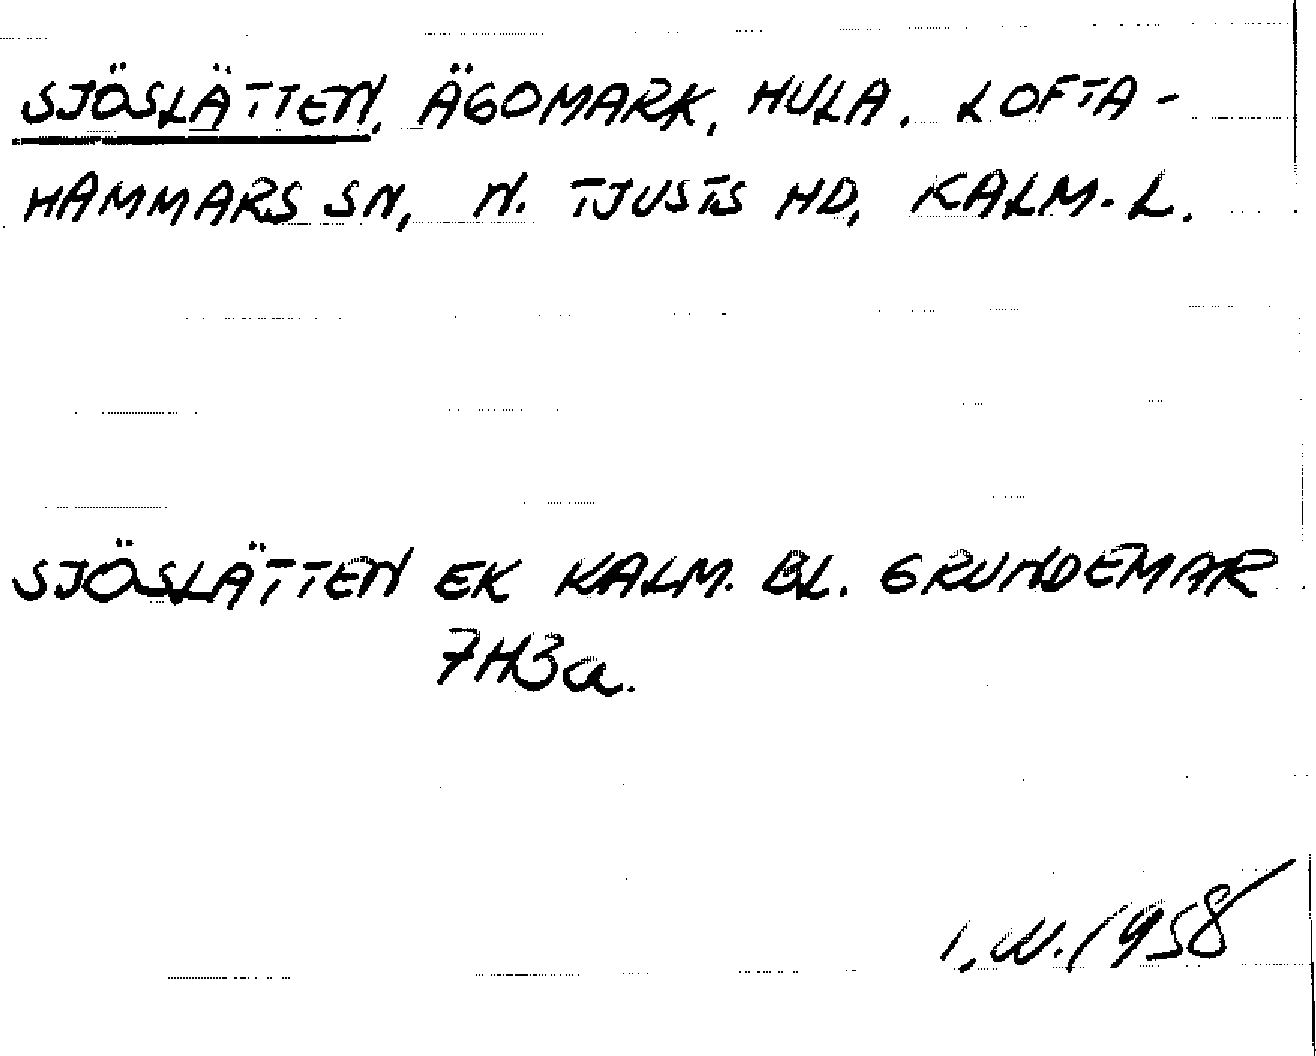 SJÖSLÄTTEN, ÄGOMARK, HULA, LOFTA-
HAMMARS SN, N. TJUSTS HD, KALM. L.
SJÖSLÄTTEN EK KALM. BL. GRUNDEMAR
7H3a.
I.W. 1958